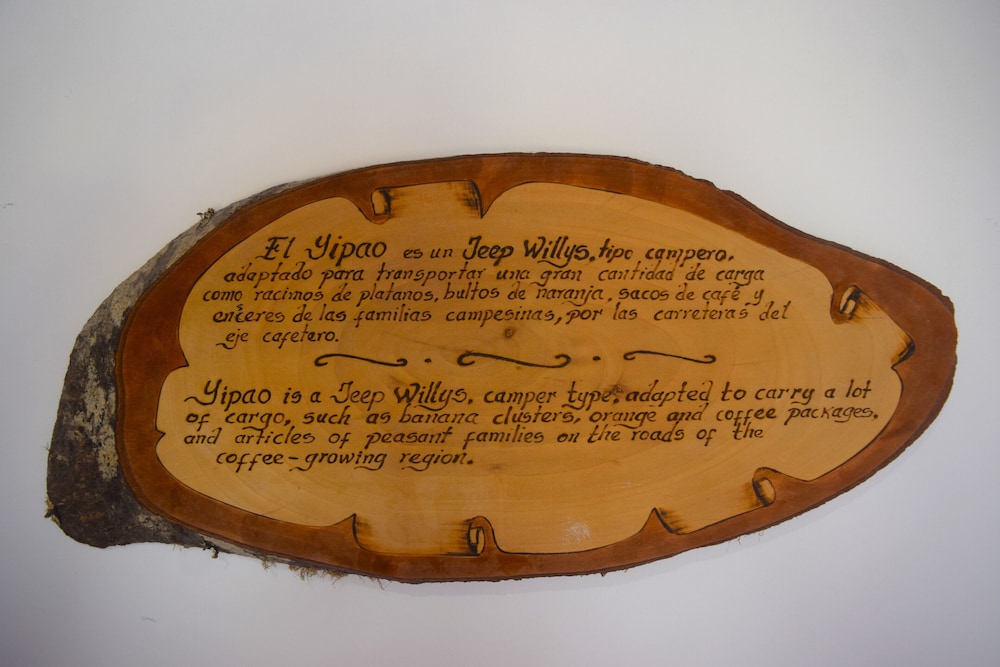 El Yipao es un Jeep Willys, tipo campero,
adaptado para transportar una gran cantidad de carga
como racimos de platanos, bultos de naranja, sacos de café y
enceres de las familias campesinas, por las carreteras del
eje cafetero.
Yipao is a Jeep Willys, camper type, adapted to carry a lot
of cargo, such as banana clusters, orange and coffee packages,
and articles of peasant families on the roads of the
coffee-growing region.